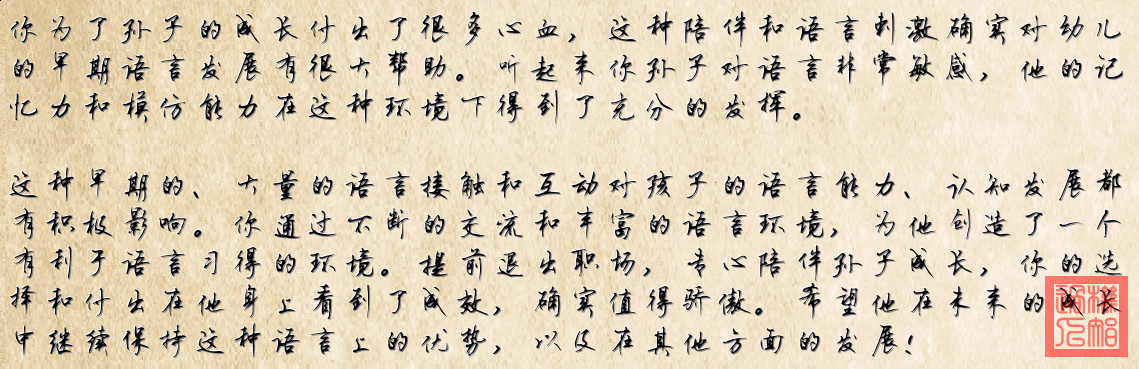 你为了孙子的成长付出了很多心血，这种陪伴和语言刺激确实对幼儿
的早期语言发展有很大帮助。听起来你孙子对语言非常敏感，他的记
忆力和模仿能力在这种环境下得到了充分的发挥。
这种早期的、大量的语言接触和互动对孩子的语言能力、认知发展都
有积极影响。你通过不断的交流和丰富的语言环境，为他创造了一个
有利于语言习得的环境。提前退出职场，专心陪伴孙子成长，你的选
择和付出在他身上看到了成效，确实值得骄傲。希望他在未来的成长
中继续保持这种语言上的优势，以及在其他方面的发展！